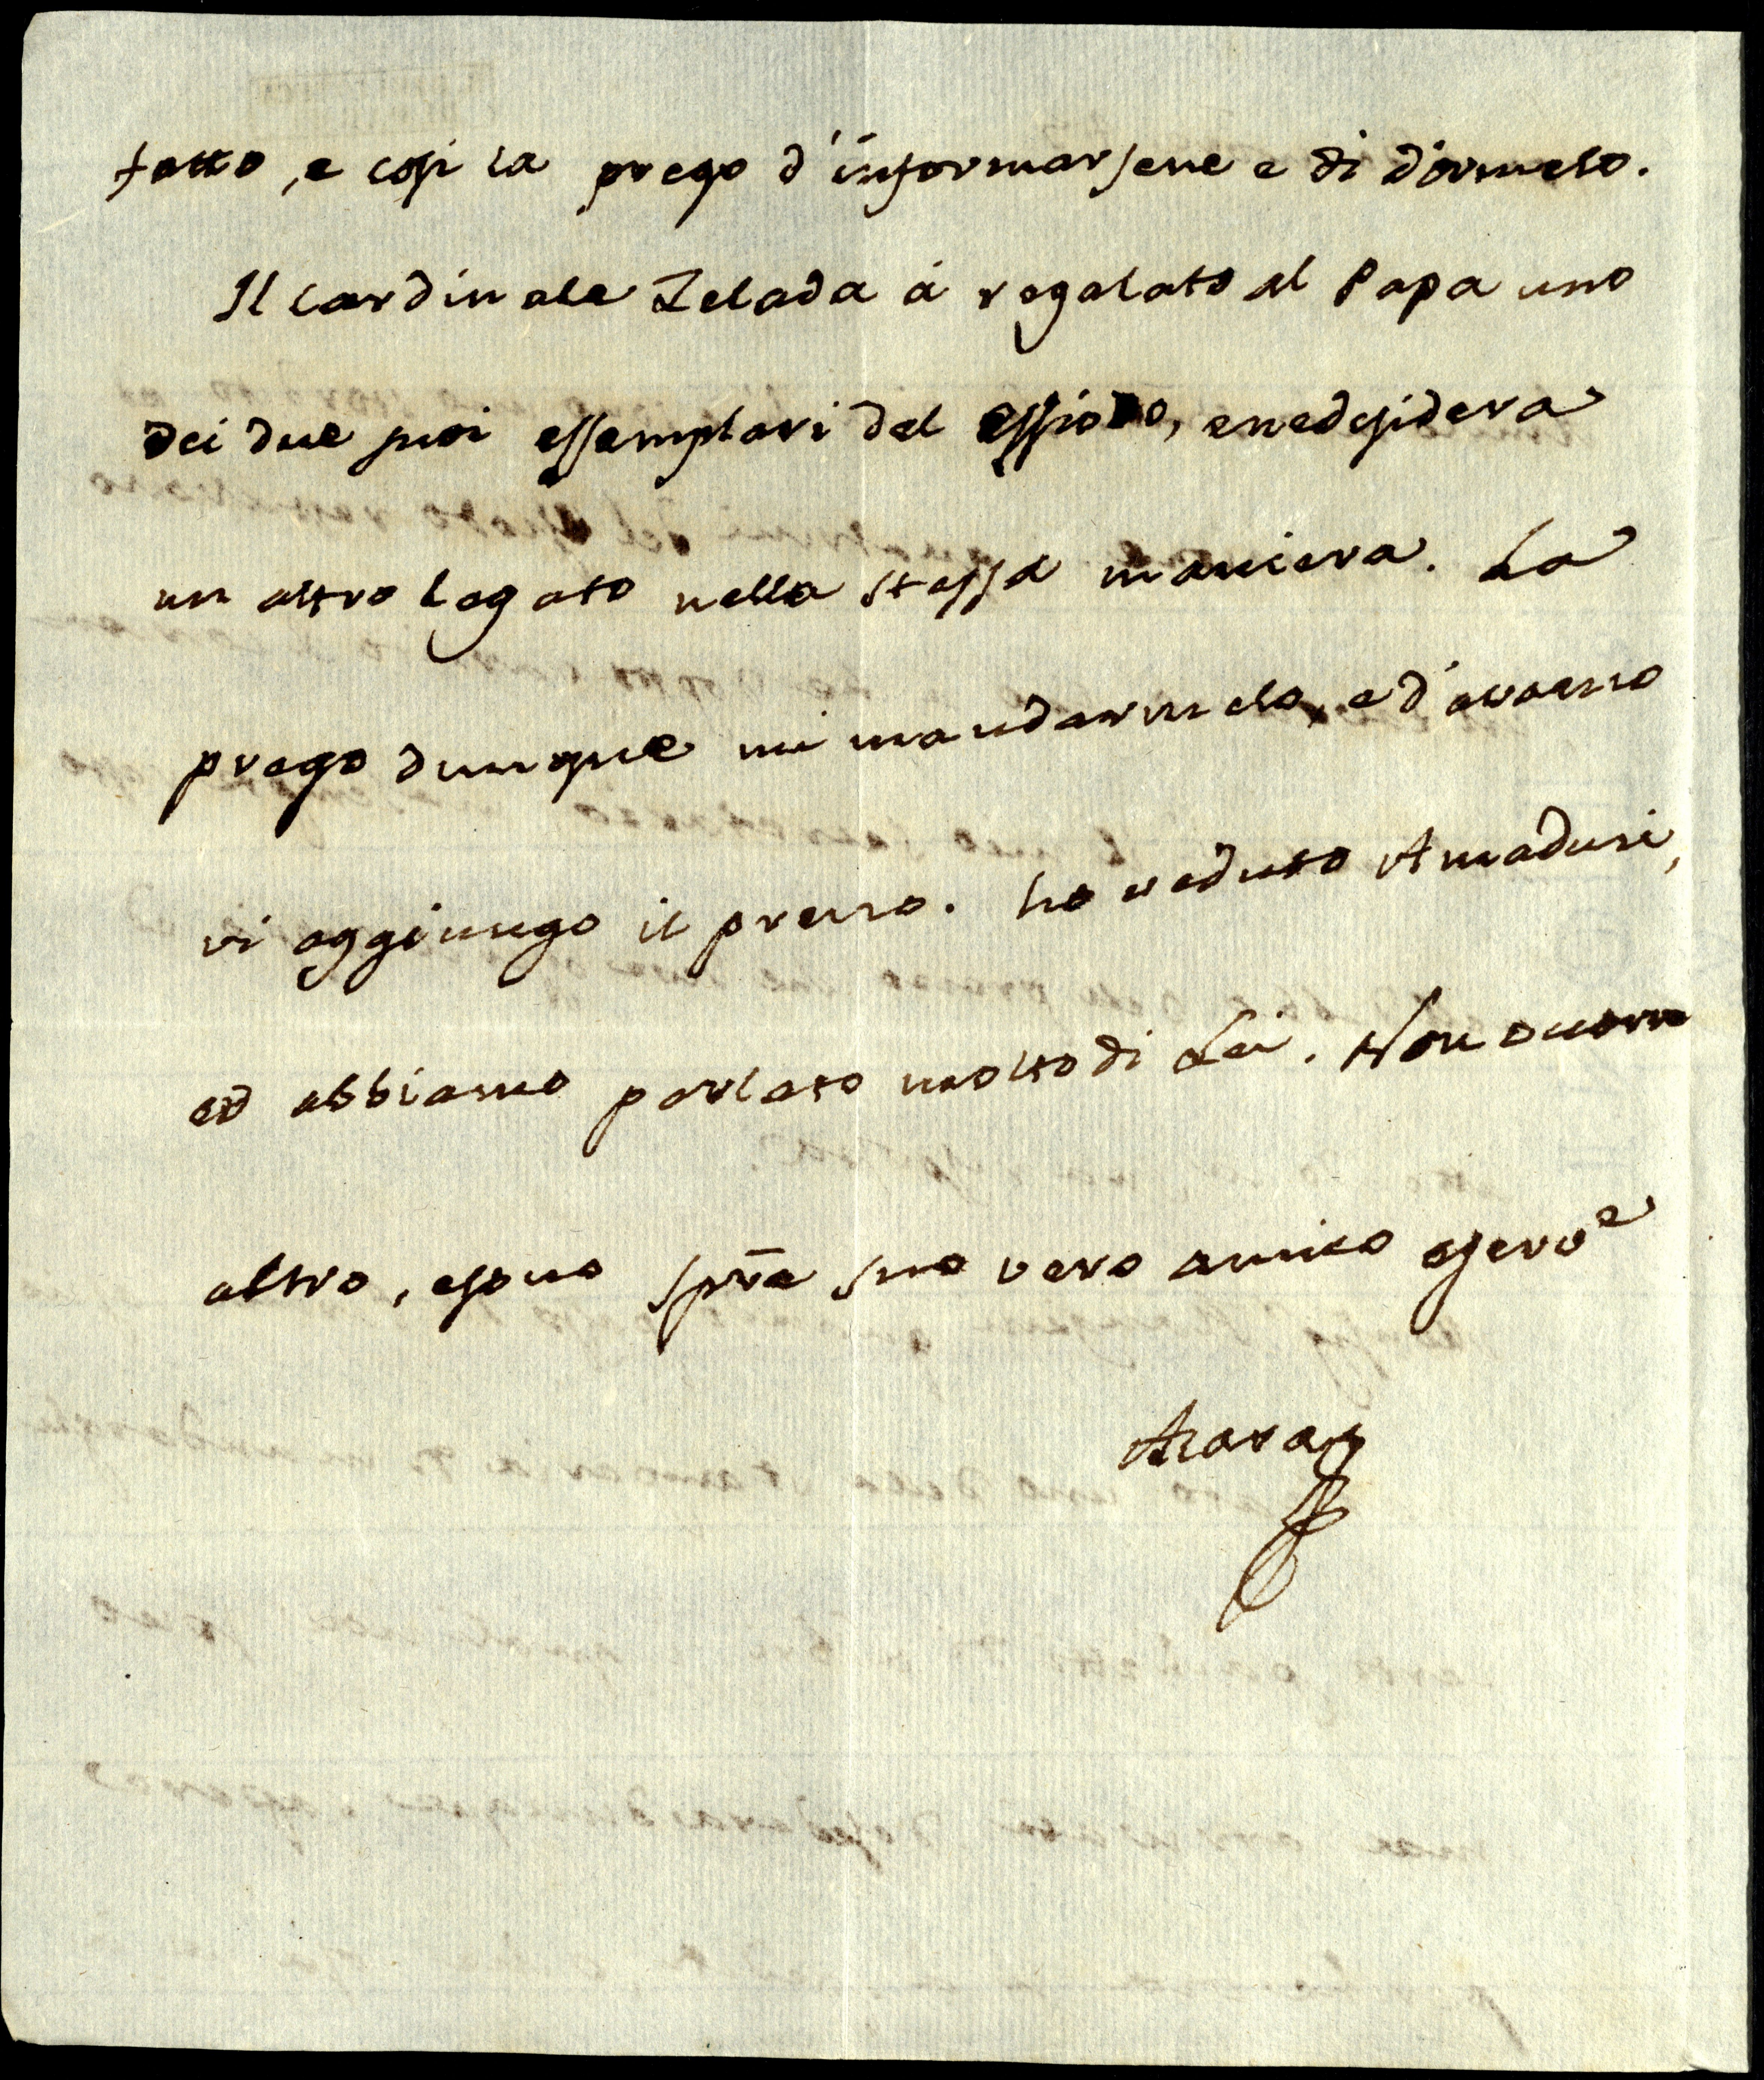 fatto, e così la prego d'informarsene e di dirmelo.
Il Cardinale Zelada à regalato al Papa uno
dei due suoi essemplari del Essiodo, e ne desidera
un altro legato nella stessa maniera. La
prego dunque mi mandarmelo, e d'avermo
vi aggiungo il prezzo. ho veduto Amadusi,
ed abbiamo parlato molto di Lei. Non occorre
altro, e sono spre suo vero amico e serve
Azara